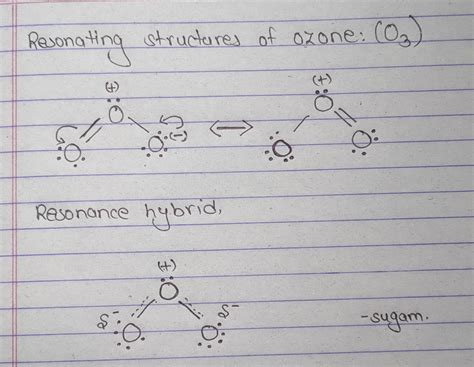 Resonating structures of ozone: (O3)
(+) (+)
O O
O O (-) ⟷ O O
Resonance hybrid,
(+)
O
δ- δ-
O O
-sugam.